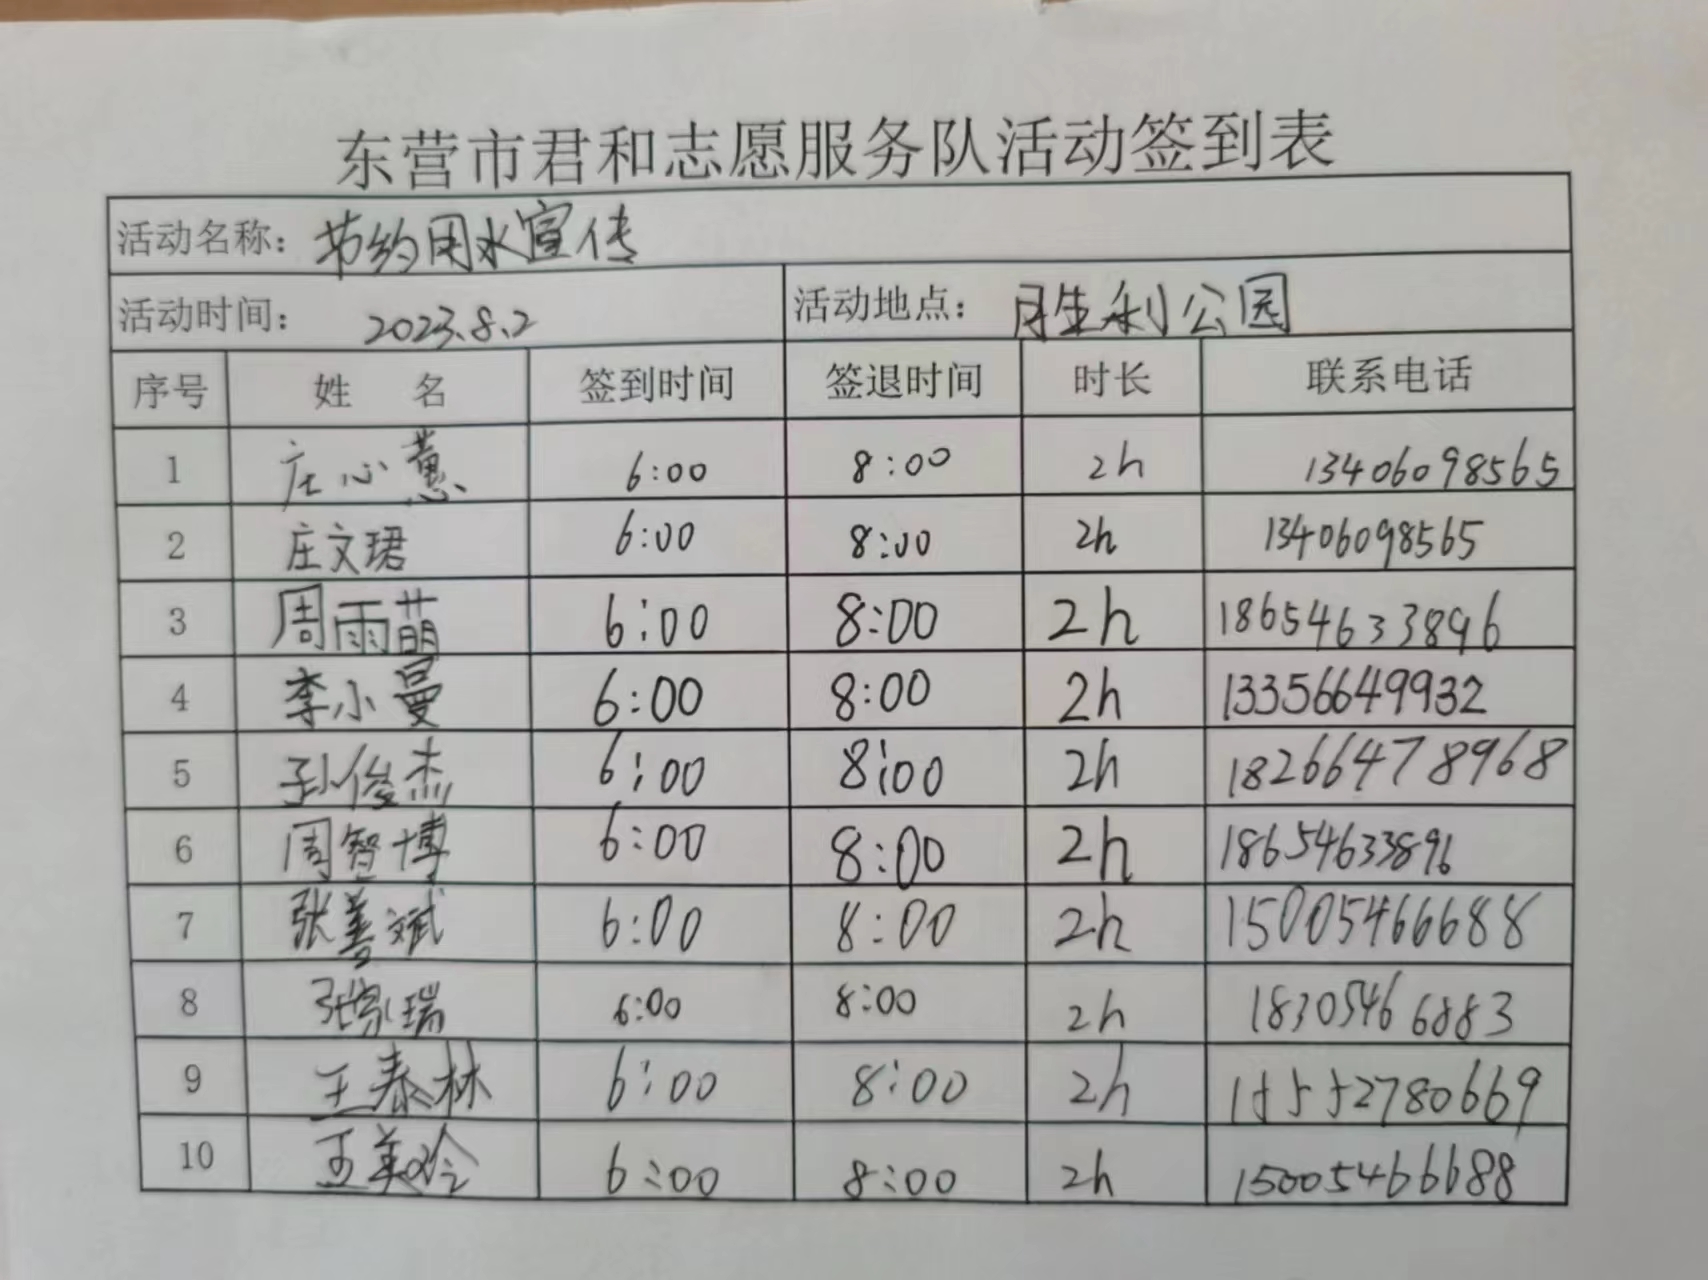 东营市君和志愿服务队活动签到表
活动名称：节约用水宣传
活动时间：2023.8.2 活动地点：月生利公园
序号 姓名 签到时间 签退时间 时长 联系电话
1 庄心蕙 6:00 8:00 2h 13406098565
2 庄文珺 6:00 8:00 2h 13406098565
3 周雨萌 6:00 8:00 2h 18654633896
4 李小曼 6:00 8:00 2h 13356649932
5 孙俊杰 6:00 8:00 2h 18266478968
6 周智博 6:00 8:00 2h 18654633896
7 张善斌 6:00 8:00 2h 15005466688
8 张家瑞 6:00 8:00 2h 18305466883
9 王泰林 6:00 8:00 2h 15552780669
10 王美玲 6:00 8:00 2h 15005466688